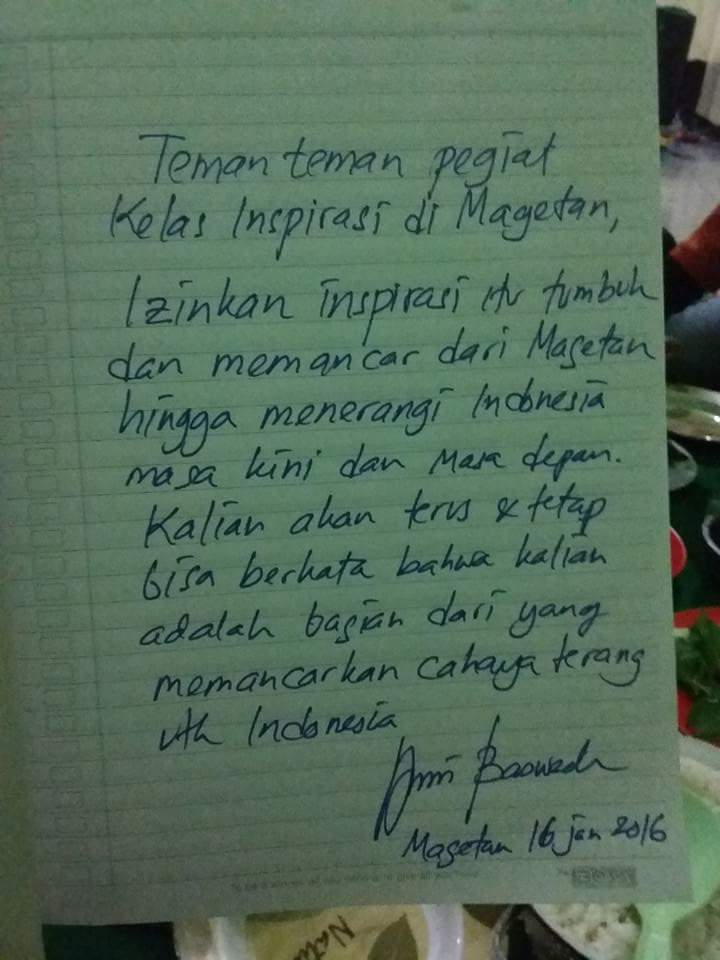 Teman teman pegiat
Kelas Inspirasi di Magetan,
Izinkan inspirasi itu tumbuh
dan memancar dari Magetan
hingga menerangi Indonesia
masa kini dan masa depan.
Kalian akan terus & tetap
bisa berkata bahwa kalian
adalah bagian dari yang
memancarkan cahaya terang
utk Indonesia
Anis Baswedan
Magetan 16 jan 2016
Natu